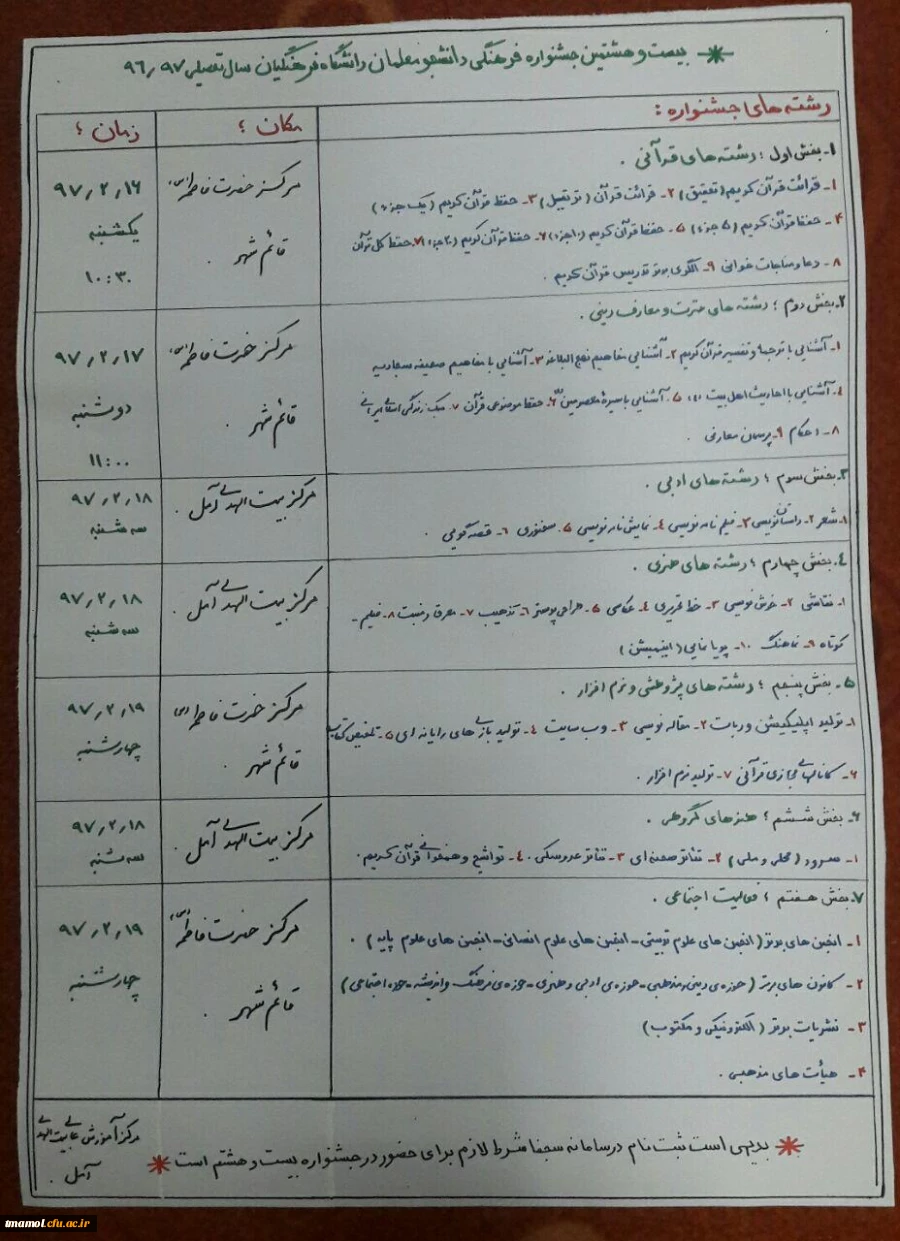 بیست و هشتمین جشنواره فرهنگی دانشجو معلمان دانشگاه فرهنگیان سال تحصیلی ۹۷٫۹۶
رشته های جشنواره :
مکان :
زمان :
۱- بخش اول : رشته های قرآنی .
۱- قرائت قرآن کریم (تحقیق) ۲- قرائت قرآن (ترتیل) ۳- حفظ قرآن کریم (یک جزء)
۴- حفظ قرآن کریم (۵ جزء) ۵- حفظ قرآن کریم (۱۰ جزء) ۶- حفظ قرآن کریم (۲۰ جزء) ۷- حفظ کل قرآن
۸- دعا و مناجات خوانی ۹- الگوی برتر تدریس قرآن کریم .
مرکز حضرت فاطمه (س)
قائم شهر .
۹۷٫۲٫۱۶
یکشنبه
۱۰:۳۰
۲- بخش دوم : رشته های عترت و معارف دینی .
۱- آشنایی با ترجمه و تفسیر قرآن کریم ۲- آشنایی مفاهیم نهج البلاغه ۳- آشنایی با مفاهیم صحیفه سجادیه
۴- آشنایی با احادیث اهل بیت (ع) ۵- آشنایی با سیرهٔ معصومین ۶- حفظ موضوعی قرآن ۷- سبک زندگی اسلامی ایرانی
۸- احکام ۹- پرسمان معارفی .
مرکز حضرت فاطمه (س)
قائم شهر .
۹۷٫۲٫۱۷
دوشنبه
۱۱:۰۰
۳- بخش سوم : رشته های ادبی .
۱- شعر ۲- داستان نویسی ۳- فیلم نامه نویسی ۴- نمایش نامه نویسی ۵- سخنوری ۶- قصه گویی .
مرکز بیت الهدی آمل .
۹۷٫۲٫۱۸
سه شنبه
۴- بخش چهارم : رشته های هنری .
۱- نقاشی ۲- خوش نویسی ۳- خط تحریری ۴- عکاسی ۵- طراحی پوستر ۶- تذهیب ۷- معرق و منبت ۸- فیلم -
کوتاه ۹- نماهنگ ۱۰- پویا نمایی (انیمیشن)
مرکز بیت الهدی آمل .
۹۷٫۲٫۱۸
سه شنبه
۵- بخش پنجم : رشته های پژوهشی و نرم افزار .
۱- تولید اپلیکیشن و ربات ۲- مقاله نویسی ۳- وب سایت ۴- تولید بازی های رایانه ای ۵- تلخیص کتاب
۶- کانالهای مجازی قرآنی ۷- تولید نرم افزار .
مرکز حضرت فاطمه (س)
قائم شهر .
۹۷٫۲٫۱۹
چهارشنبه
۶- بخش ششم : هنرهای گروهی .
۱- سرود (محلی و ملی) ۲- تئاتر صحنه ای ۳- تئاتر عروسکی . ۴- تواشیح و همخوانی قرآن کریم .
مرکز بیت الهدی آمل .
۹۷٫۲٫۱۸
سه شنبه
۷- بخش هفتم : فعالیت اجتماعی .
۱- انجمن های برتر (انجمن های علوم تربیتی - انجمن های علوم انسانی - انجمن های علوم پایه) .
۲- کانون های برتر (حوزه ی دینی و مذهبی - حوزه ی ادبی و هنری - حوزه ی فرهنگ و اندیشه - حوزه اجتماعی)
۳- نشریات برتر (الکترونیکی و مکتوب)
۴- هیأت های مذهبی .
مرکز حضرت فاطمه (س)
قائم شهر .
۹۷٫۲٫۱۹
چهارشنبه
بدیهی است ثبت نام در سامانه سجفا شرط لازم برای حضور در جشنواره بیست و هشتم است
مرکز آموزش عالی بیت الهدی
آمل .
tmamol.cfu.ac.ir